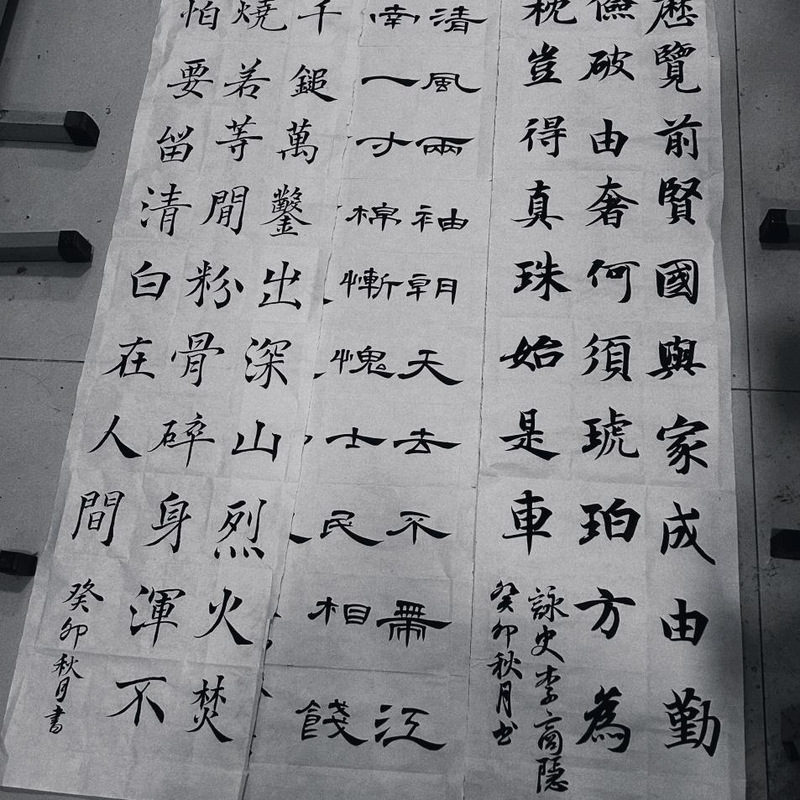 歷覽前賢國與家成由勤
儉破由奢何須琥珀方為
枕豈得真珠始是車
詠史李商隱
癸卯秋月书
清風兩袖朝天去不帶江
南一寸棉慚愧士民相餞
千鎚萬鑿出深山烈火焚
燒若等閒粉骨碎身渾不
怕要留清白在人間
癸卯秋月書